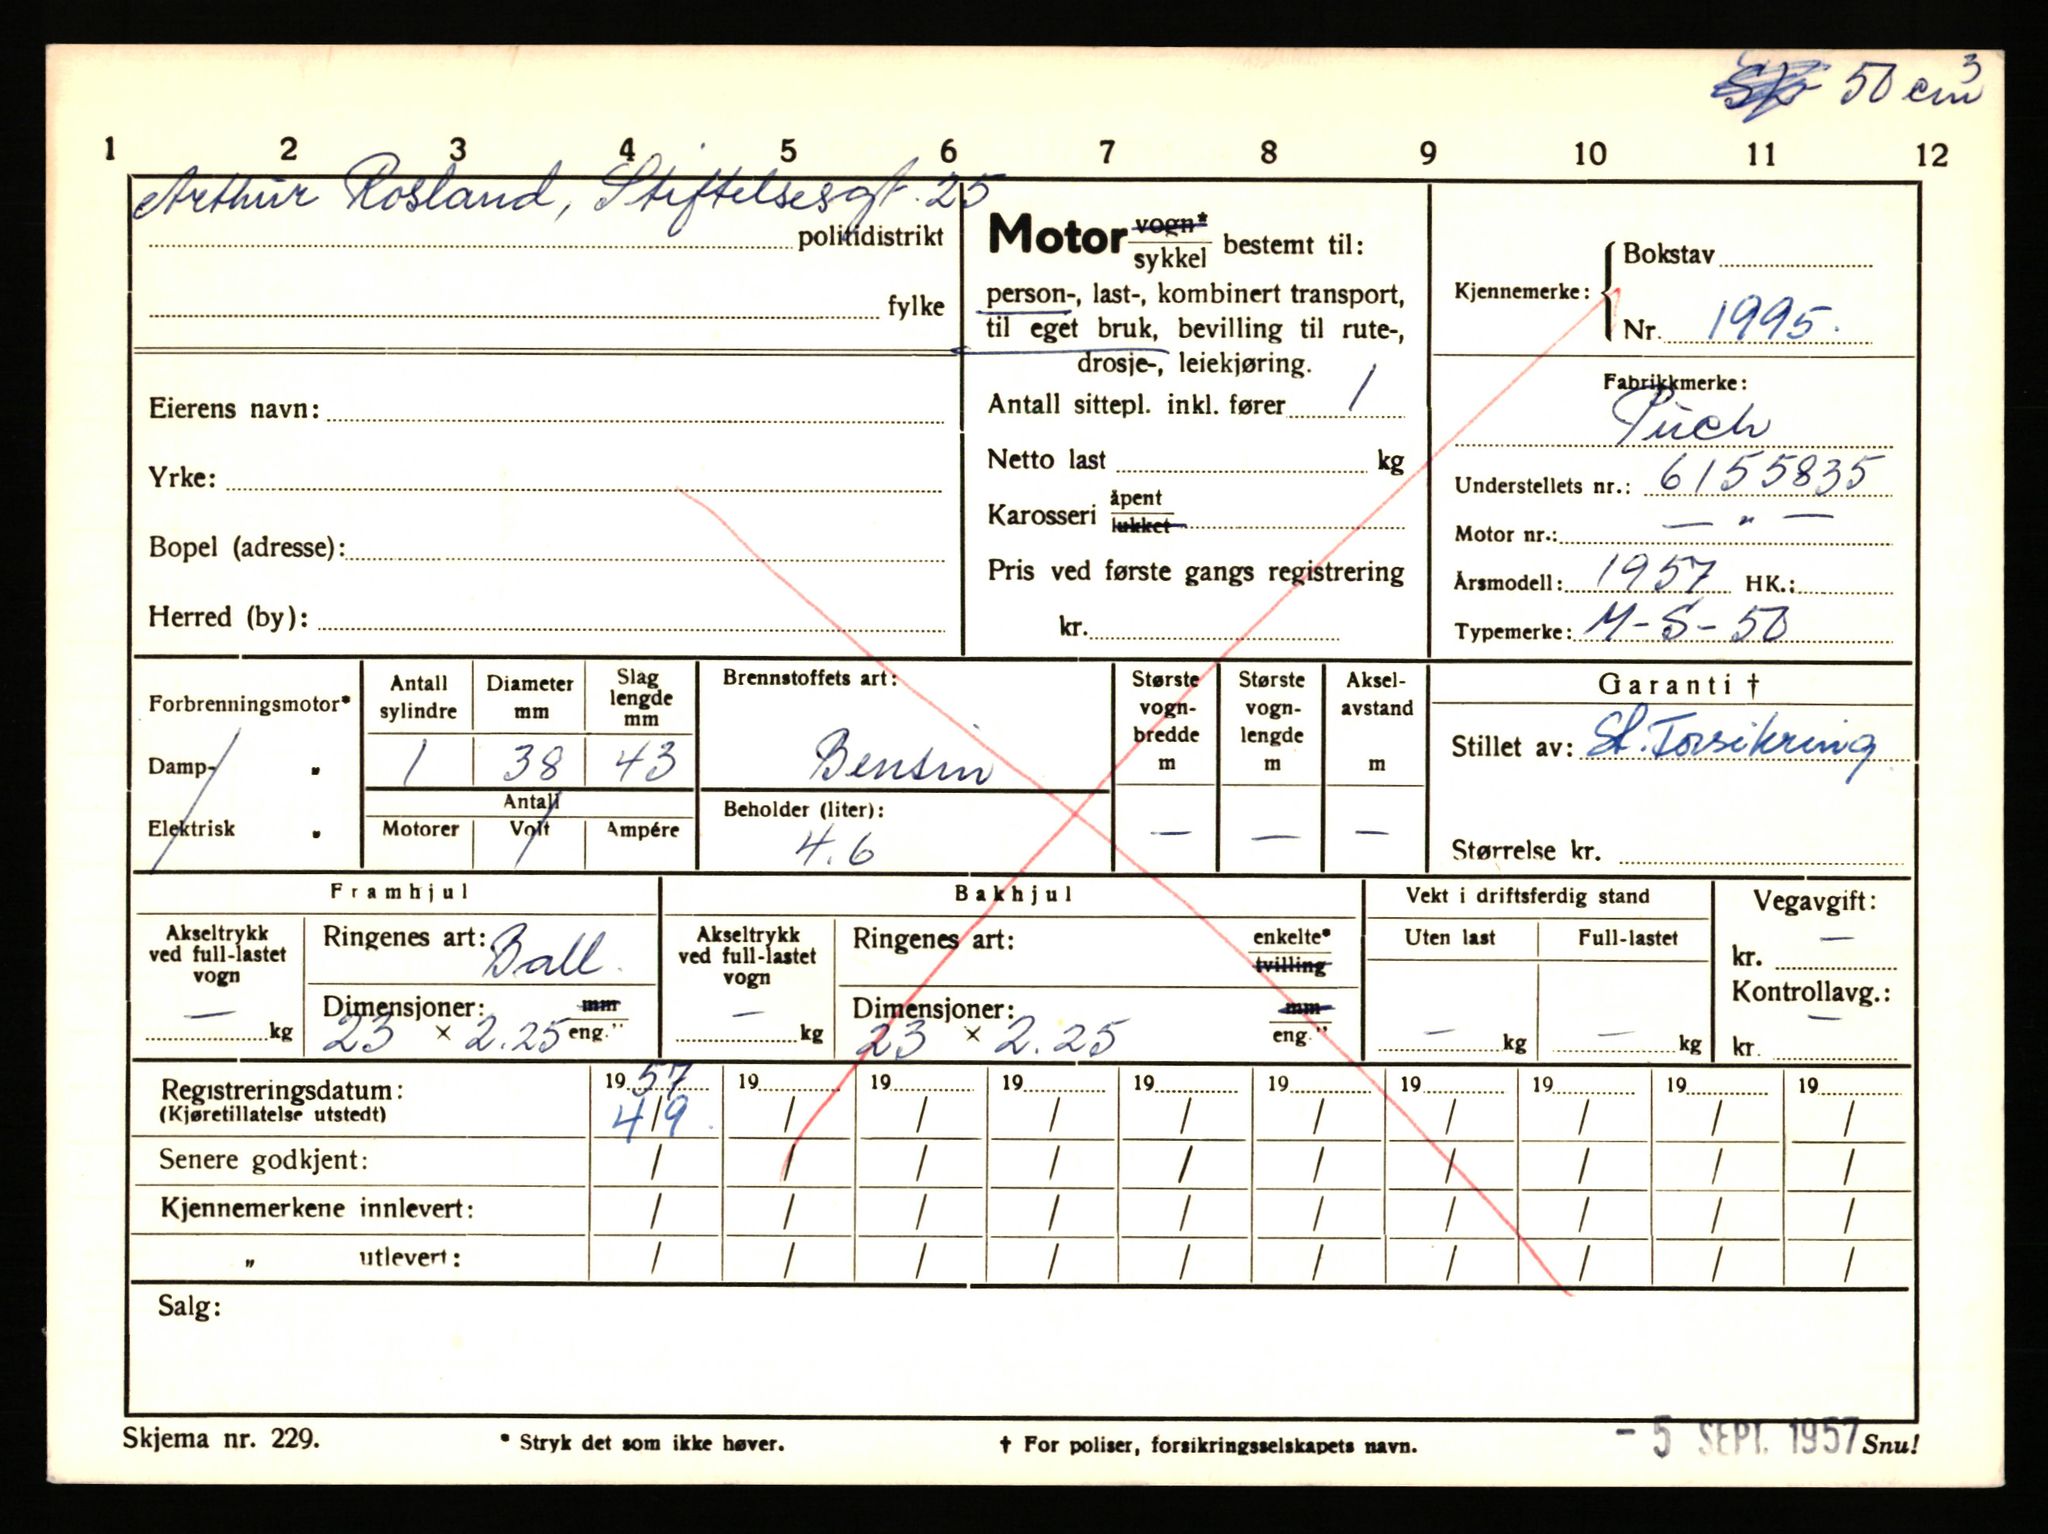 50 cm3
1 2 3 4 5 6 7 8 9 10 11 12
Arthur Rosland, Stiftelsesgt. 25
politidistrikt
fylke
Eierens navn:
Yrke:
Bopel (adresse):
Herred (by):
Motor vogn* / sykkel bestemt til:
person-, last-, kombinert transport,
til eget bruk, bevilling til rute-,
drosje-, leiekjøring.
Antall sittepl. inkl. fører 1
Netto last kg
Karosseri åpent / lukket
Pris ved første gangs registrering
kr.
Kjennemerke: Bokstav
Nr. 1995.
Fabrikkmerke:
Puch
Understellets nr.: 6155835
Motor nr.: — " —
Årsmodell: 1957 HK.:
Typemerke: M-S-50
Forbrenningsmotor*
Damp- "
Elektrisk "
Antall sylindre
Diameter mm
Slag lengde mm
1 38 43
Antall
Motorer Volt Ampére
Brennstoffets art:
Bensin
Beholder (liter):
4.6
Største vogn-bredde m
—
Største vogn-lengde m
—
Aksel-avstand m
—
Garanti †
Stillet av: St. Forsikring
Størrelse kr.
Framhjul
Akseltrykk
ved full-lastet
vogn
— kg
Ringenes art: Ball.
Dimensjoner: mm / eng."
23 × 2.25
Bakhjul
Akseltrykk
ved full-lastet
vogn
— kg
Ringenes art: enkelte* / tvilling
Dimensjoner: mm / eng."
23 × 2.25
Vekt i driftsferdig stand
Uten last Full-lastet
— kg — kg
Vegavgift:
kr. —
Kontrollavg.:
kr. —
Registreringsdatum: 1957 19 19 19 19 19 19 19 19 19
(Kjøretillatelse utstedt) 4/9. / / / / / / / / /
Senere godkjent: / / / / / / / / / /
Kjennemerkene innlevert: / / / / / / / / / /
" utlevert: / / / / / / / / / /
Salg:
Skjema nr. 229. * Stryk det som ikke høver. † For poliser, forsikringsselskapets navn. - 5 SEPT. 1957 Snu!